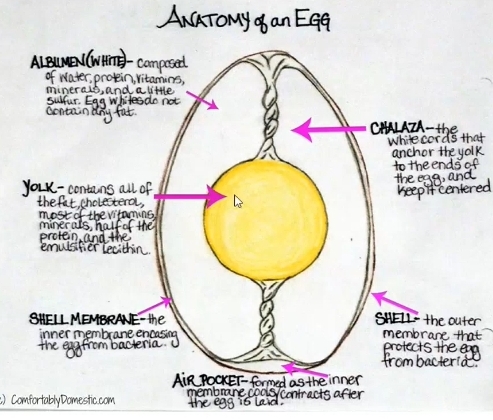 ANATOMY of an EGG
ALBUMEN (WHITE)- composed
of water, protein, vitamins,
minerals, and a little
sulfur. Egg whites do not
contain any fat.
CHALAZA-the
white cords that
anchor the yolk
to the ends of
the egg, and
keep it centered
YOLK- contains all of
the fat, cholesterol,
most of the vitamins,
minerals, half of the
protein, and the
emulsifier lecithin.
SHELL MEMBRANE- the
inner membrane encasing
the egg from bacteria.
SHELL- the outer
membrane that
protects the egg
from bacteria.
AIR POCKET- formed as the inner
membrane cools/contracts after
the egg is laid.
) ComfortablyDomestic.com